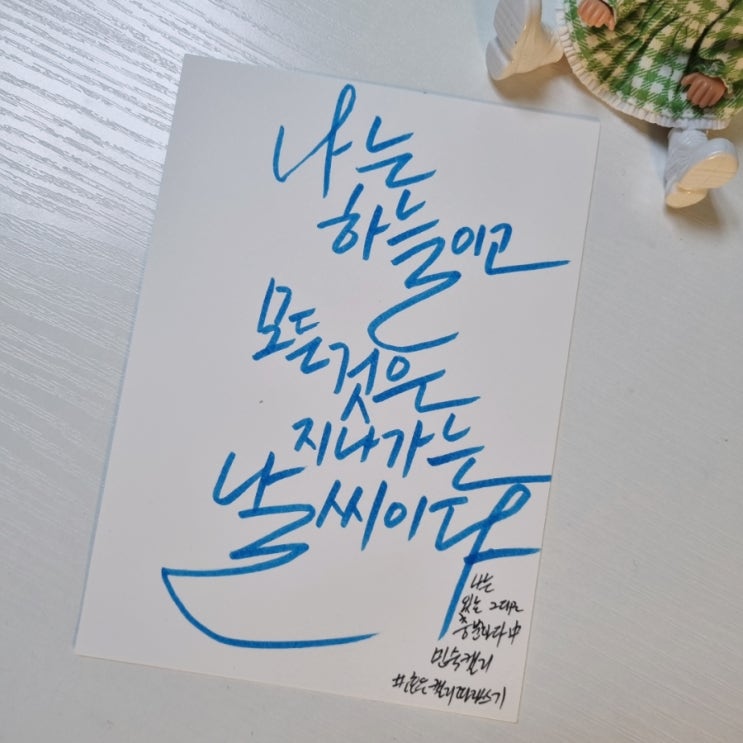 나는
하늘이고
모든것은
지나가는
날씨이다
나는
있는 그대로
충분하다 中
민숙캘리
캘리따라쓰기